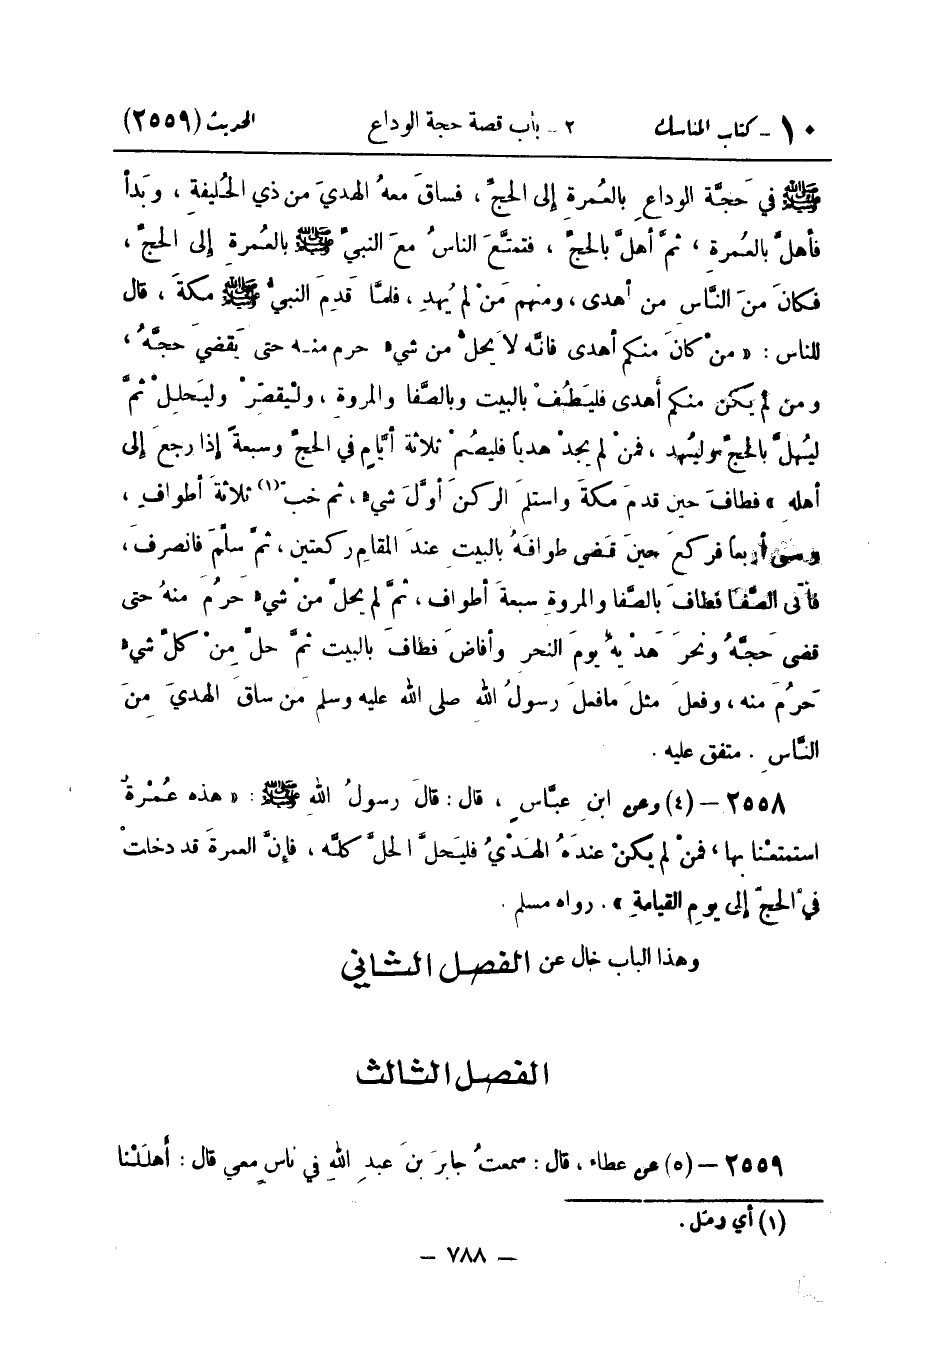 ١٠ - كتاب المناسك ٢ - باب قصة حجة الوداع الحديث (٢٥٥٩)
ﷺ في حَجَّة الوداعِ بالعُمرةِ إلى الحجِّ ، فساقَ معهُ الهديَ من ذي الحُليفةِ ، وبَدأ
فأهلَّ بالعُمرةِ ، ثمَّ أهلَّ بالحجِّ ، فتمتَّعَ الناسُ معَ النبيِّ ﷺ بالعُمرةِ إلى الحجِّ ،
فكانَ منَ النَّاسِ من أهدى ، ومنهم مَنْ لم يُهدِ ، فلمَّا قَدِمَ النبيُّ ﷺ مكةَ ، قال
للناس : « منْ كانَ منكم أهدى فانَّه لا يَحِلُّ من شيءٍ حرم منه حتى يَقضيَ حجَّهُ ،
ومن لم يَكُنْ منكم أهدى فليَطُفْ بالبيت وبالصَّفا والمروةِ ، ولْيقصِّرْ وليَحلِلْ ثمَّ
ليُهلَّ بالحجِّ وليُهد ، فمنْ لم يجدْ هدياً فليصُمْ ثلاثةَ أيَّامٍ في الحجِّ وسبعةً إذا رجعَ إلى
أهلهِ » فطافَ حين قدمَ مكةَ واستلمَ الركنَ أوَّلَ شيءٍ ، ثم خبَّ (١) ثلاثةَ أطوافٍ ،
ومشى أربعاً فركعَ حينَ قضى طوافَهُ بالبيت عندَ المقامِ ركعتينِ ، ثمَّ سلَّمَ فانصرفَ ،
فأتى الصَّفا فطافَ بالصَّفا والمروةِ سبعةَ أطوافٍ ، ثمَّ لم يحلَّ منْ شيءٍ حَرُمَ منهُ حتى
قضى حَجَّهُ ونحرَ هَدْيَهُ يومَ النحر وأفاضَ فطافَ بالبيت ثمَّ حلَّ مِنْ كلِّ شيءٍ
حَرُمَ منه ، وفعلَ مثلَ مافعلَ رسولُ اللهِ صلى الله عليه وسلم مَن ساقَ الهديَ مِنَ
النَّاسِ . متفق عليه .
٢٥٥٨ - (٤) وعن ابنِ عبَّاسٍ ، قال : قالَ رسولُ اللهِ ﷺ : « هذه عُمْرةٌ
استمتعْنا بها ، فمنْ لم يكنْ عندَهُ الهَدْيُ فليَحلَّ الحِلَّ كلَّه ، فإنَّ العمرةَ قد دخلتْ
في الحجِّ إلى يومِ القيامةِ » . رواه مسلم .
وهذا الباب خال عن الفصل الثاني
الفصل الثالث
٢٥٥٩ - (٥) عن عطاء ، قال : سمعتُ جابرَ بنَ عبدِ اللهِ في ناسٍ معي قال : أهلَلْنا
(١) أي رمَل .
- ٧٨٨ -